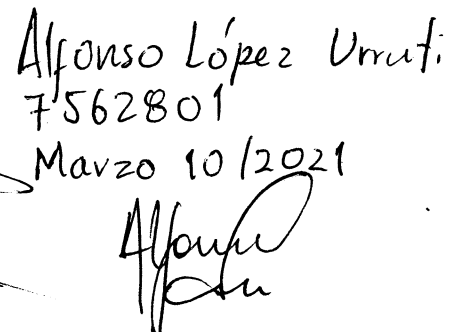 Alfonso López Urruti
7562801
Marzo 10/2021